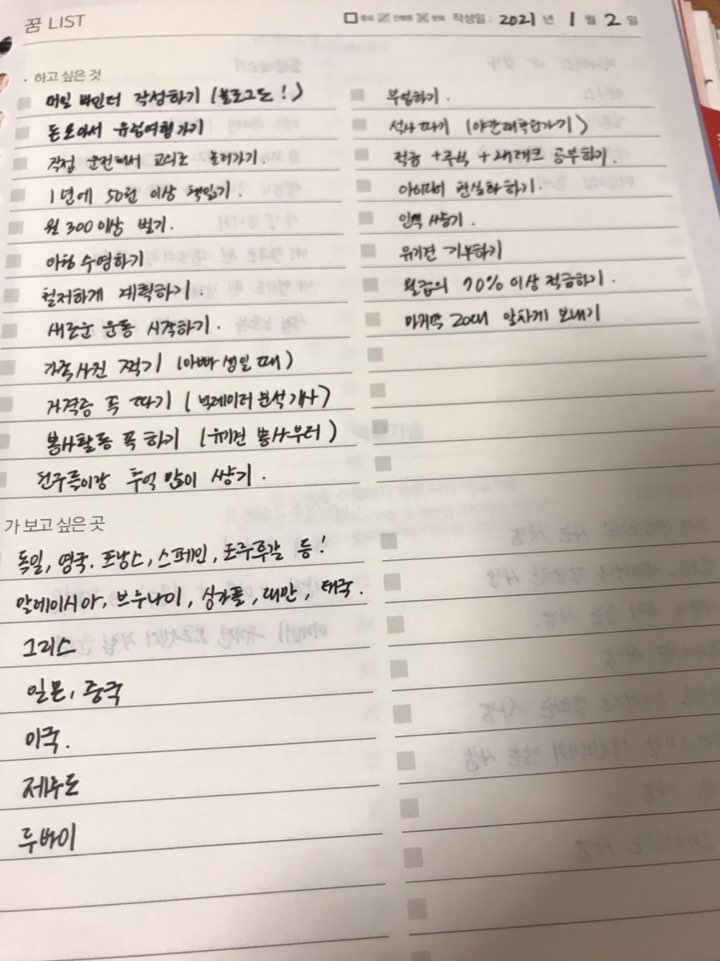 꿈 LIST
작성일 : 2021 년 1 월 2 일
· 하고 싶은 것
매일 바인더 작성하기 (블로그도!)
돈 모아서 유럽여행가기
직접 운전해서 교외로 놀러가기.
1년에 50권 이상 책읽기.
월 300이상 벌기.
아침 수영하기
철저하게 계획하기.
새로운 운동 시작하기.
가족사진 찍기 (아빠 생일 때)
자격증 푹 따기 (빅데이터 분석기사)
봉사활동 푹 하기 (유기견 봉사부터)
친구들이랑 추억 많이 쌓기.
부업하기.
석사 따기 (야간대학원가기)
적금 + 주식 + 재테크 공부하기.
아이디어 현실화하기.
인맥 쌓기.
유기견 기부하기
월급의 70% 이상 적금하기.
마지막 20대 알차게 보내기
가 보고 싶은 곳
독일, 영국, 프랑스, 스페인, 포루투갈 등!
말레이시아, 브루나이, 싱가폴, 대만, 태국.
그리스
일본, 중국
미국.
제주도
두바이